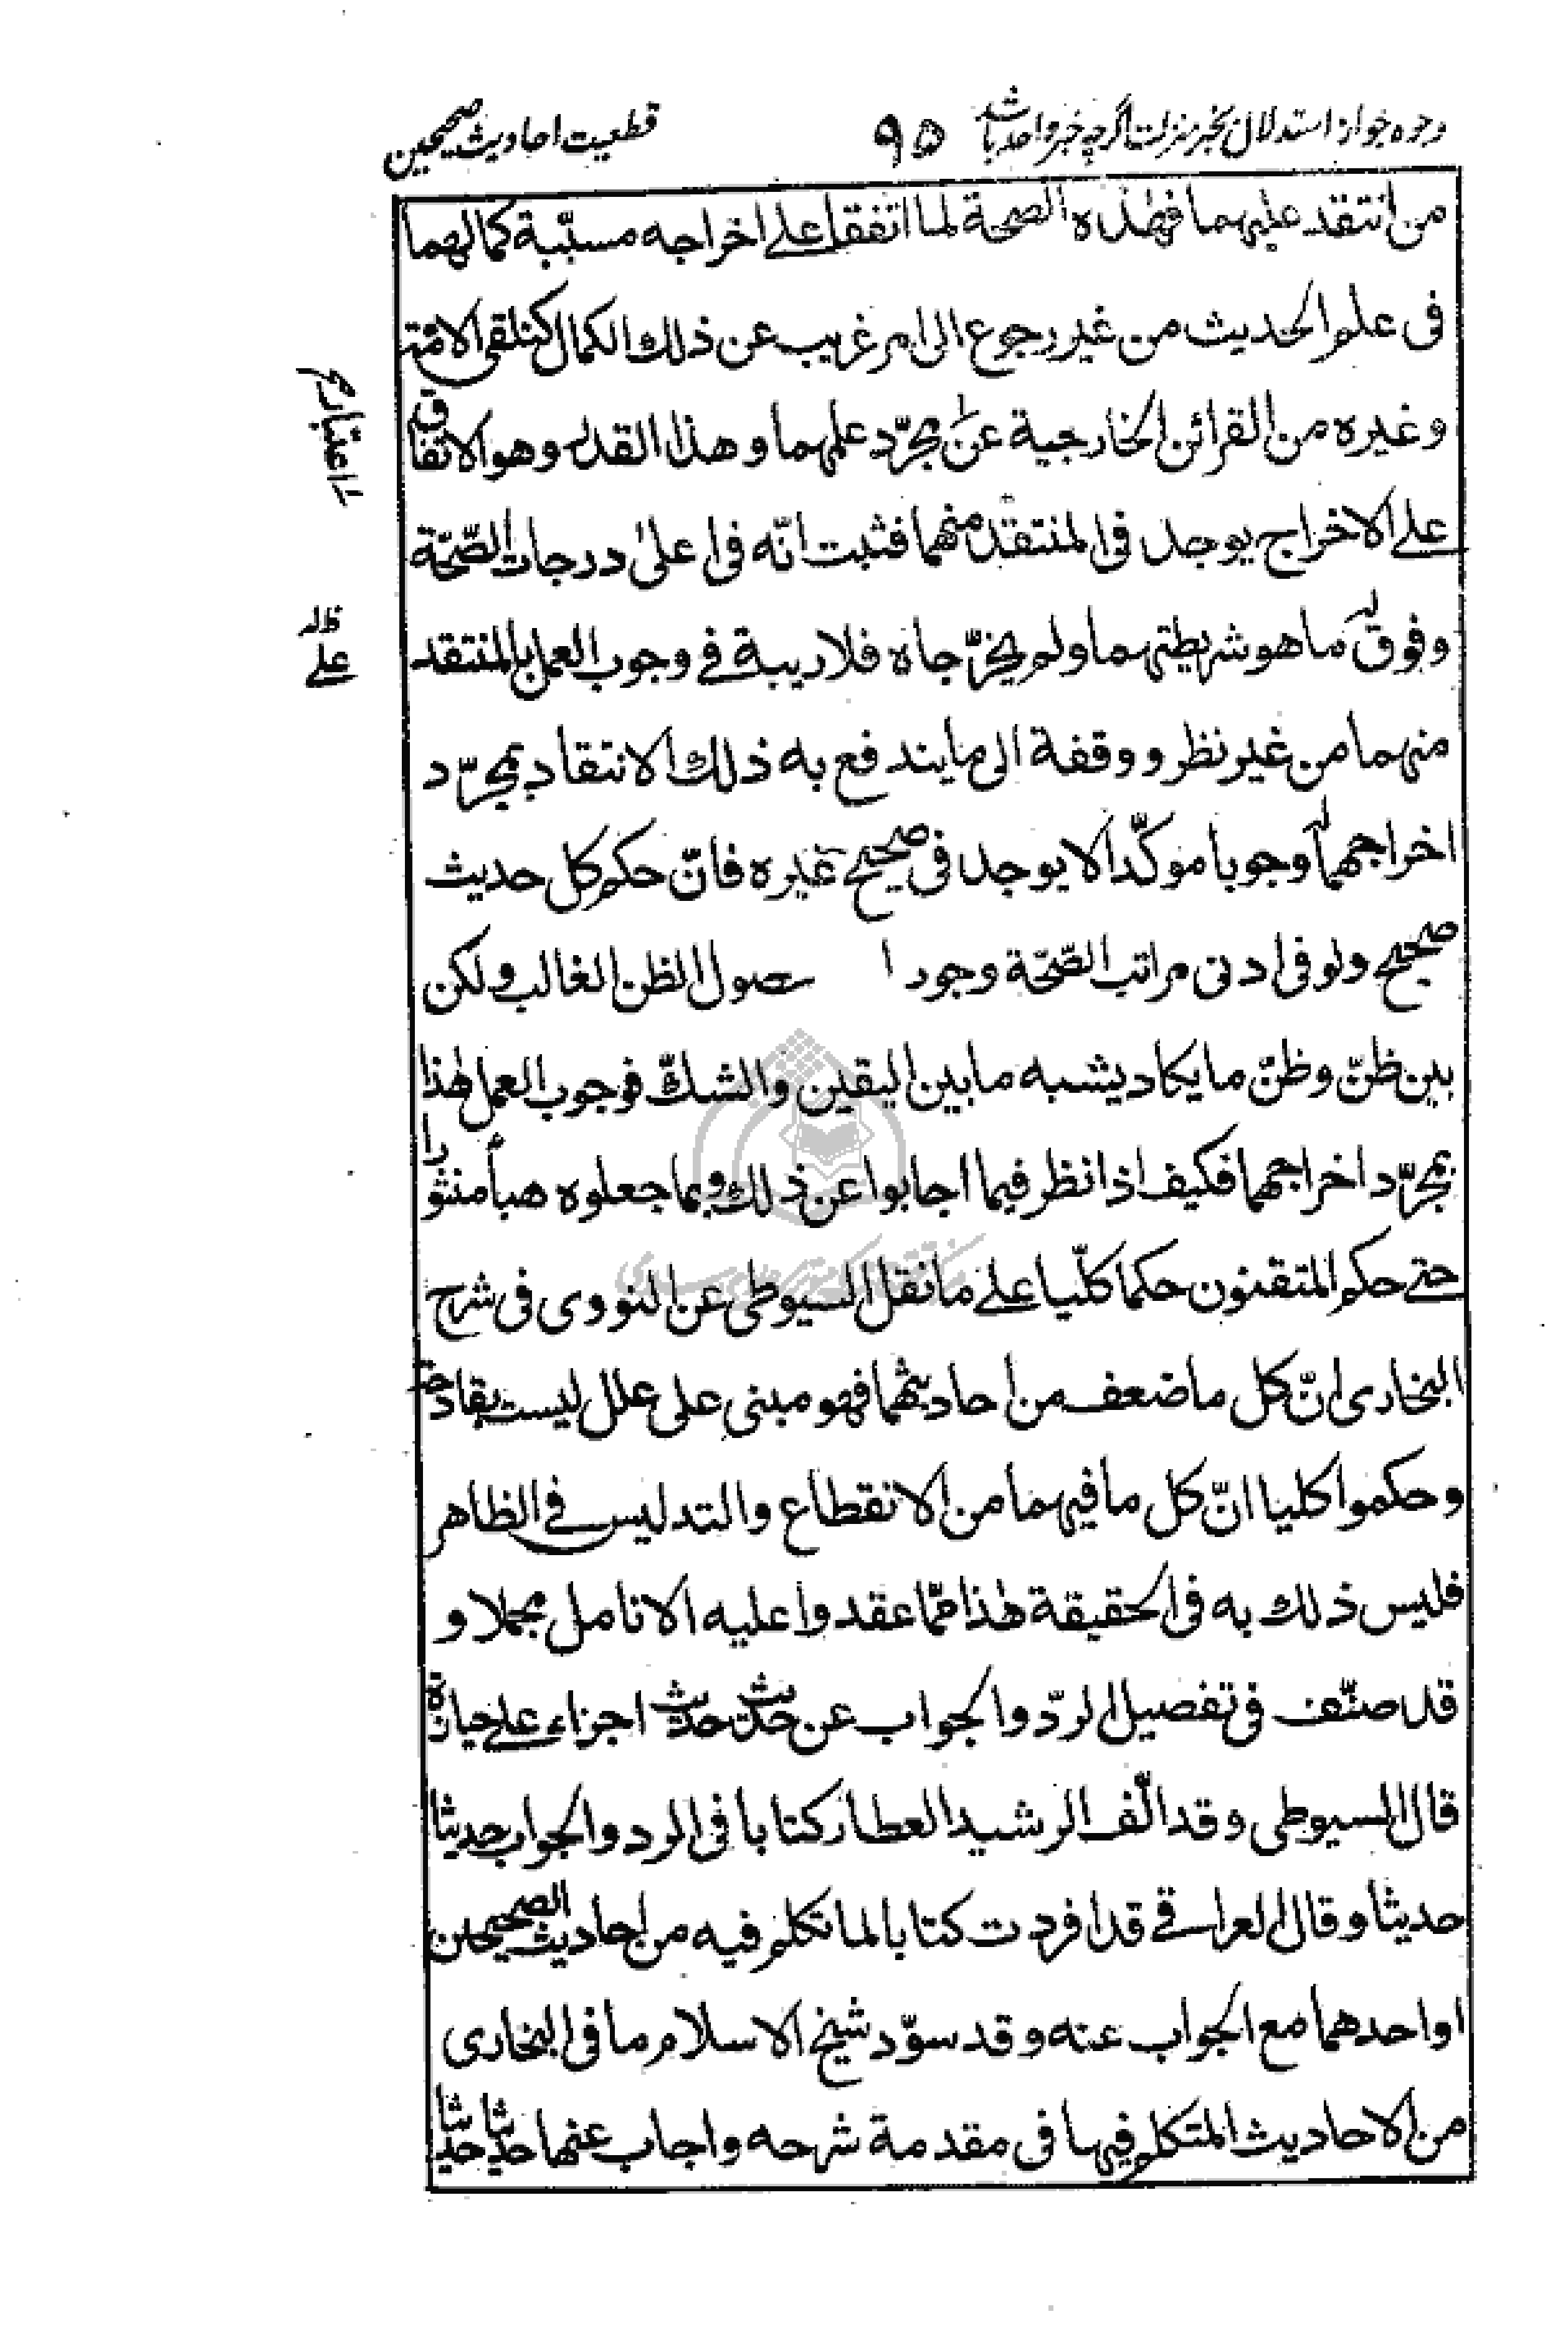 وجوه جواز استدلال بخبر منزلت اگرچه خبر واحد باشد ۹۵ قطعیت احادیث صحیحین
من انتقد علیهما فهذه الصحة لما اتفقا علے اخراجه مسبّبة کمالهما
فی علو الحدیث من غیر رجوع الی امر غریب عن ذلك الکمال کتلقی الامة
وغیره من القرائن الخارجیة عن مجرّد علمهما وهذا القدر وهو الاتفاق
علے الاخراج یوجد فی المنتقد منهما فثبت انّه فی اعلیٰ درجات الصّحّة
وفوق ما هو شریطتهما ولم یخرّجاه فلا ریبة فے وجوب العمل بالمنتقد
منهما من غیر نظر ووقفة الی ما یندفع به ذلك الانتقاد بمجرّد
اخراجهما وجوبا موکّدا لا یوجد فی صحیح غیره فانّ حکم کل حدیث
صحیح ولو فی ادنی مراتب الصّحّة وجود ا صول الظن الغالب ولکن
بین ظنّ وظنّ ما یکاد یشبه ما بین الیقین والشكّ فوجوب العمل لهذا
بمجرّد اخراجهما فکیف اذا نظر فیما اجابوا عن ذلك وبما جعلوه هبأ منثورا
حتے حکم المتقنون حکما کلّیا علے ما نقل السیوطی عن النووی فی شرح
البخاری انّ کل ما ضعف من احادیثهما فهو مبنی علی علل لیست بقادحة
وحکموا کلیا انّ کل ما فیهما من الانقطاع والتدلیس فے الظاهر
فلیس ذلك به فی الحقیقة هٰذا ممّا عقدوا علیه الانامل مجملا و
قد صنّف فی تفصیل الردّ والجواب عن حدیث حدیث اجزاء علے حیازة
قال السیوطی وقد الّف الرشید العطار کتابا فی الرد والجواب حدیثا
حدیثا وقال العراقے قد افردت کتابا لما تکلم فیه من احادیث الصحیحین
او احدهما مع الجواب عنه وقد سوّد شیخ الاسلام ما فی البخاری
من الاحادیث المتکلم فیها فی مقدمة شرحه واجاب عنها حدیثا حدیثا
علے